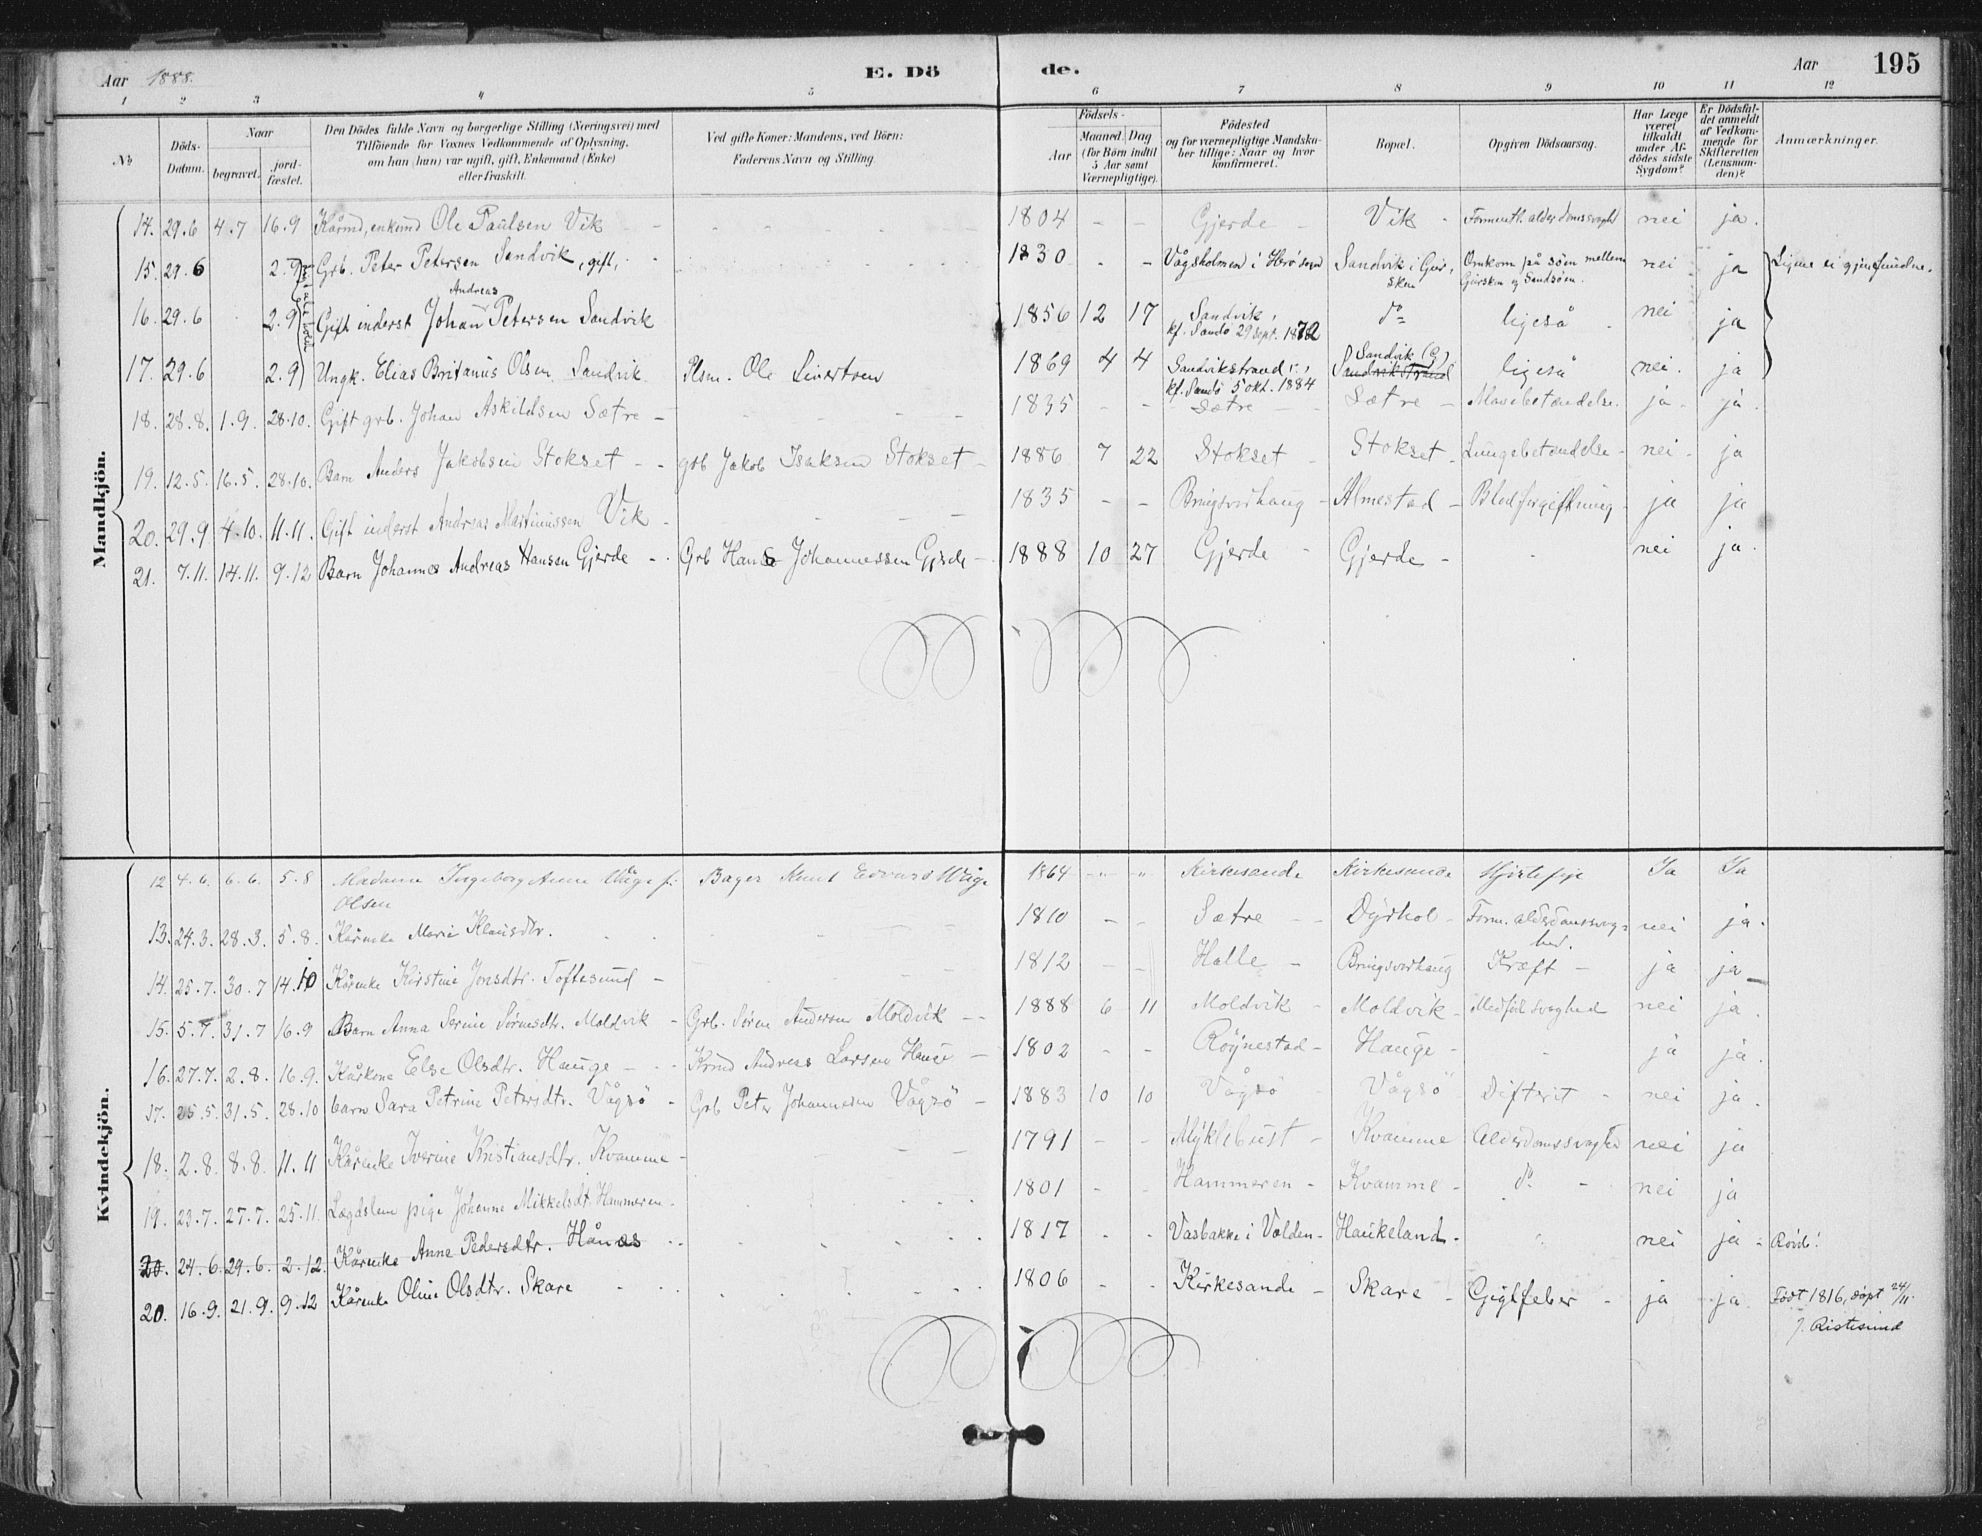 Aar 1888. E. Dö de. Aar 195
1 2 3 4 5 6 7 8 9 10 11 12
No
Döds-
Datum.
Naar
begravet.
jord-
fæstet.
Den Dödes fulde Navn og borgerlige Stilling (Næringsvei) med
Tilföiende for Voxnes Vedkommende af Oplysning,
om han (hun) var ugift, gift, Enkemand (Enke)
eller fraskilt.
Ved gifte Koner: Mandens, ved Börn:
Faderens Navn og Stilling.
Födsels-
Aar
Maaned. Dag
(for Börn indtil
5 Aar samt
Værnepligtige).
Födested
og for værnepligtige Mandska-
ber tillige: Naar og hvor
konfirmeret.
Bopæl.
Opgiven Dödsaarsag.
Har Læge
været
tilkaldt
under Af-
dödes sidste
Sygdom?
Er Dödsfal-
det anmeldt
af Vedkom-
mende for
Skifteretten
(Lensman-
den)?
Anmærkninger.
Mandkjön.
14. 29.6 4.7 16.9 Kårmd, enkemd Ole Paulsen Vik 1804 - - Gjerde Vik Forment. alderdomssvaghd nei ja.
15. 29.6 2.9 Grb. Peter Petersen Sandvik, gift, 1830 - - Vågsholmen i Herö sogn Sandvik i Gur- Omkom på söen mellem nei ja
sken Gursken og Sandsöen.
Andreas
16. 29.6 2.9 Gift inderst Johan Petersen Sandvik 1856 12 17 Sandvik, do ligeså nei ja
kf. Sandö 29 sept. 1872
17. 29.6 2.9 Ungk. Elias Britanus Olsen Sandvik Plsm. Ole Sivertsen 1869 4 4 Sandvikstrand Sandvik ligeså nei. ja
kf. Sandö 5 okt. 1884 Sandvikstrand
18. 28.8. 1.9. 28.10. Gift grb. Johan Askildsen Sætre - 1835 - - Sætre Sætre - Mavebetændelse. ja. ja.
19. 12.5. 16.5. 28.10. Barn Anders Jakobsen Stokset - grb Jakob Isaksen Stokset - 1886 7 22 Stokset Stokset - Lungebetændelse - nei. ja
20. 29.9 4.10. 11.11. Gift inderst Andreas Martinussen Vik 1835 - - Bringsvorhaug - Almestad - Blodforgiftning ja ja
21. 7.11. 14.11. 9.12 Barn Johannes Andreas Hansen Gjerde - Grb Hans Johannessen Gjerde - 1888 10 27 Gjerde - Gjerde - nei ja.
Kvindekjön.
12 4.6. 6.6. 5.8 Madame Ingeborg Anne Våge f. Bager Knut Edvard Våge 1864 " " Kirkesande Kirkesande Hjertefeje Ja Ja
Olsen
13. 24.3. 28.3. 5.8. Kårenke Marie Klausdtr. 1810 - - Sætre - Dyrhol - Form. alderdomssvag- nei ja.
hed.
14. 25.7. 30.7 14.10 Kårenke Kirstine Jonsdtr. Toftesund - 1812 - - Halle - Bringsvorhaug Kræft - ja ja
15. 5.7. 31.7 16.9 Barn Anna Serine Sörensdtr. Moldvik - Grb. Sören Andersen Moldvik - 1888 6 11 Moldvik - Moldvik - Medföd svaghed nei ja.
16. 27.7. 2.8. 16.9. Kårkone Else Olsdtr. Hauge - Krmd Andreas Larsen Hauge - 1802 - - Röynestad - Hauge - ja ja.
17. 25.5. 31.5. 28.10 barn Sara Petrine Petersdtr. Vågsö - Grb Peter Johannesen Vågsö - 1883 10 10 Vågsö Vågsö Difterit - nei ja.
18. 2.8. 8.8. 11.11 Kårenke Iverine Kristiansdtr. Kvamme - 1791 - - Myklebust - Kvamme Alderdomssvaghd nei ja
19. 23.7. 27.7. 25.11. Lægdslem pige Johanne Mikkelsdt. Hammeren. 1801 - - Hammeren - Kvamme - do - nei ja
20. 24.6. 29.6. 2.12. Kårenke Anne Pedersdtr. Hånæs 1817 - - Vasbakke i Volden - Haukeland - nei ja -
20. 16.9. 21.9. 9.12 Kårenke Oline Olsdtr. Skare 1806 - - Kirkesande - Skare - Gigtfeber - ja ja. Född 1816, döpt 24/11.